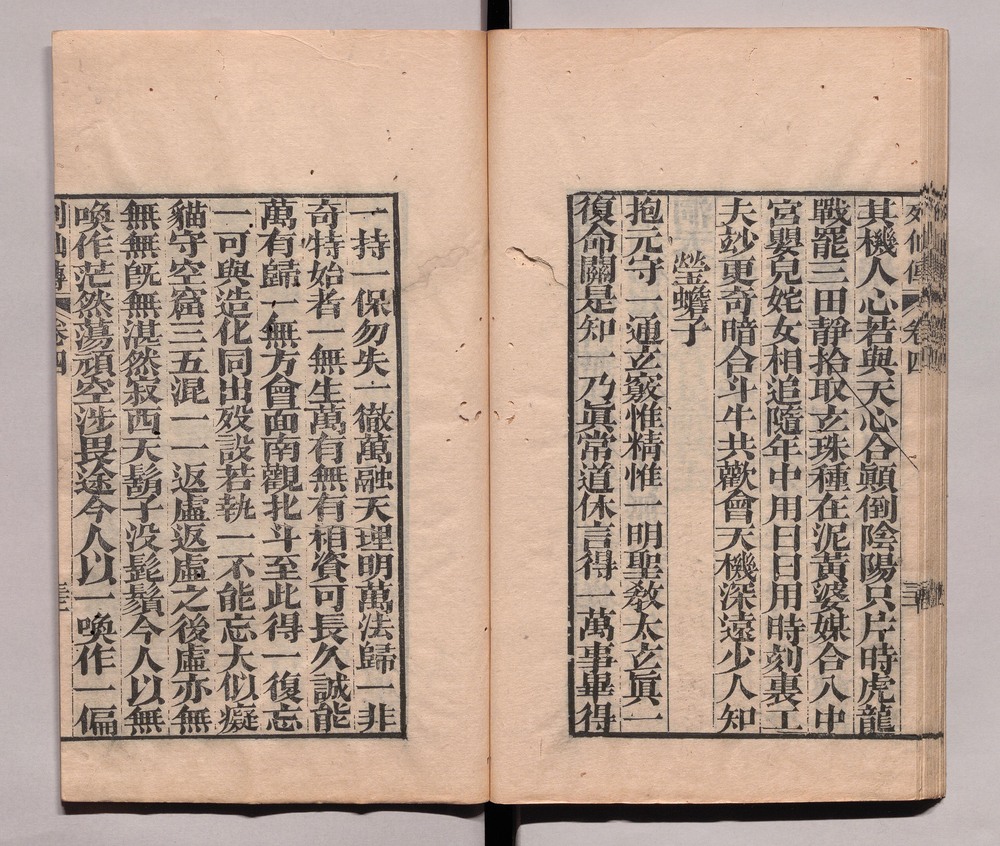 列仙傳 卷四
其機人心若與天心合顚倒陰陽只片時虎龍
戰罷三田靜拾取玄珠種在泥黃婆媒合入中
宮嬰兒姹女相追隨年中用日日用時刻裏工
夫玅更奇暗合斗牛共歡會天機深遠少人知
瑩蟾子
抱元守一通玄竅惟精惟一明聖敎太玄眞一
復命關是知一乃眞常道休言得一萬事畢得
一持一保勿失一徹萬融天理明萬法歸一非
奇特始者一無生萬有無有相資可長久誠能
萬有歸一無方會面南觀北斗至此得一復忘
一可與造化同出歿設若執一不能忘大似癡
貓守空窟三五混一一返虛返虛之後虛亦無
無無旣無湛然寂西天鬍子没髭鬚今人以無
喚作茫然蕩頑空涉畏途今人以一喚作一偏
列仙傳 卷四